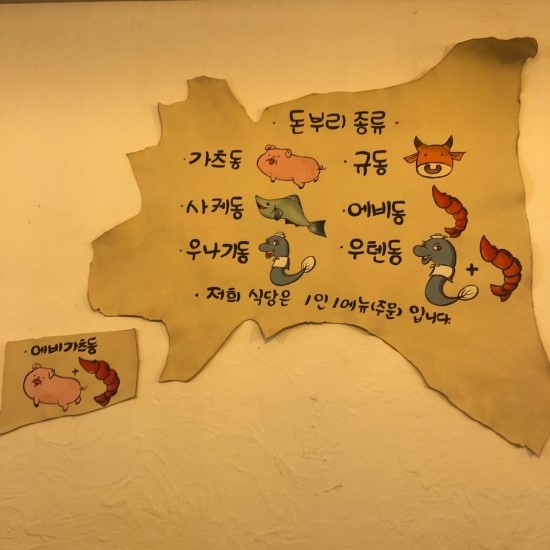 돈부리 종류
· 가츠동 · 규동
· 사케동 · 에비동
· 우나기동 · 우텐동
+
· 저희 식당은 1인 1메뉴(주문) 입니다.
· 에비가츠동
+